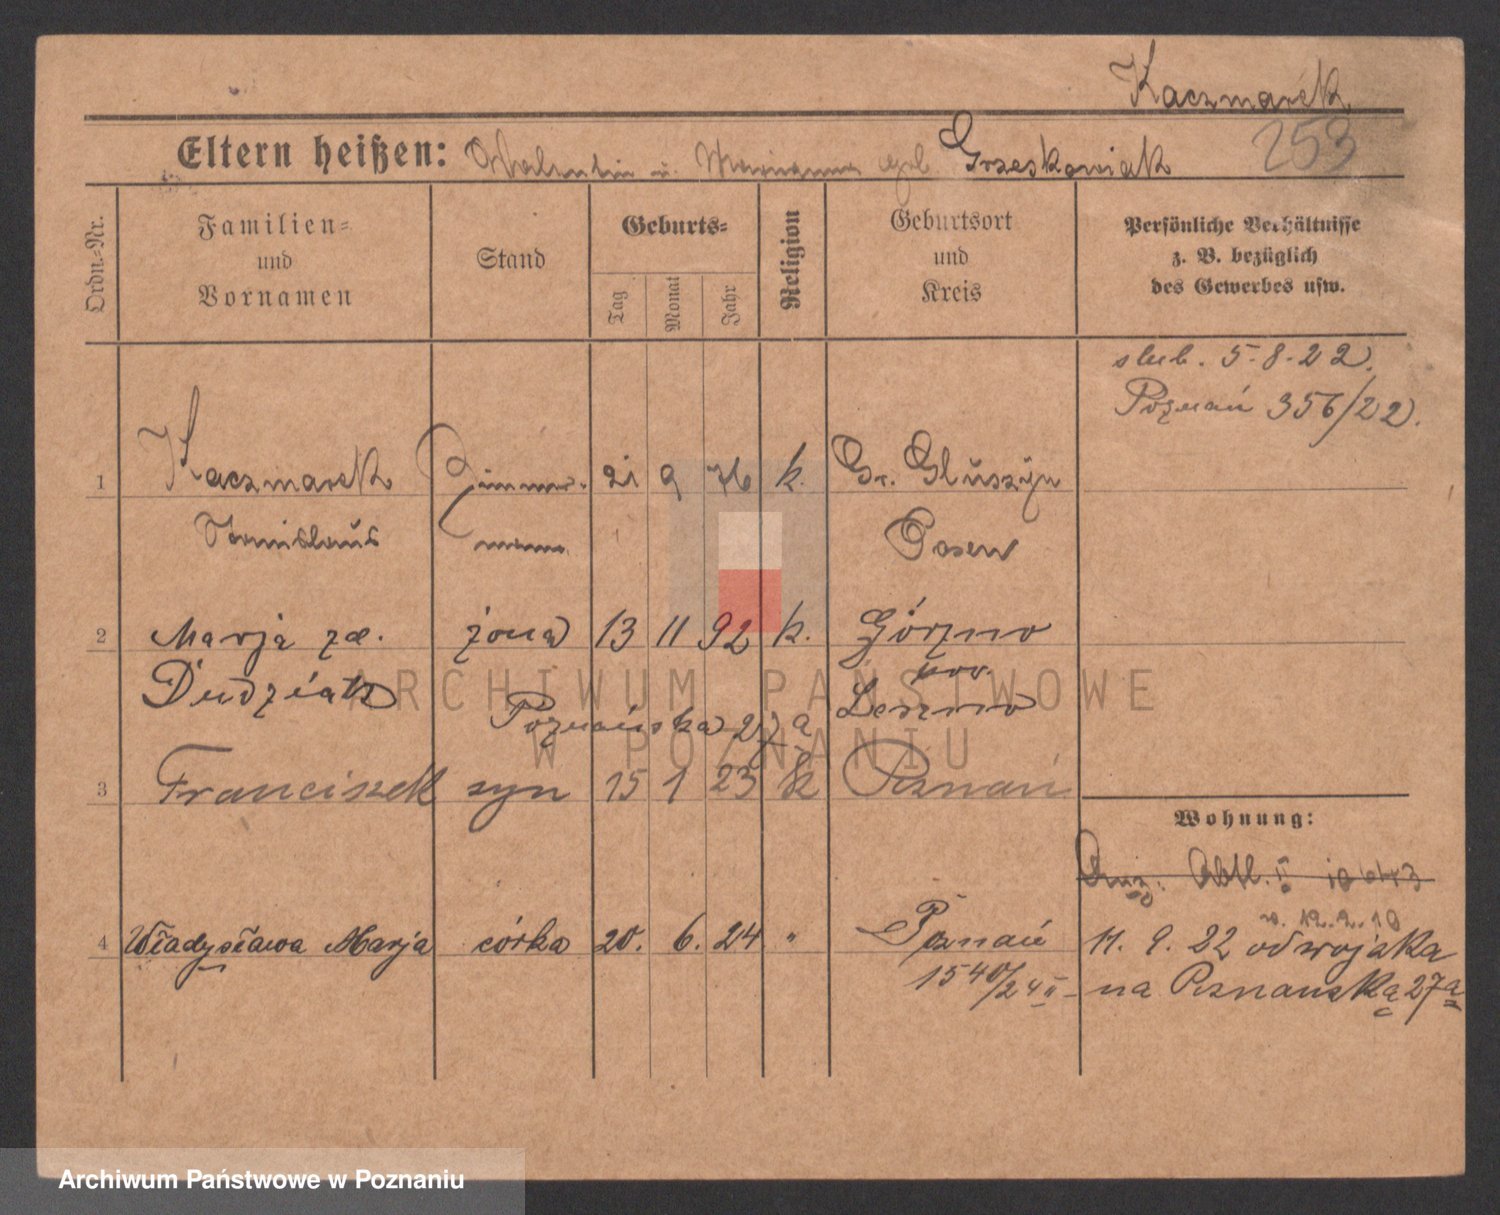 Kaczmarek
253
Eltern heißen: Valentin u. Marianna geb Grzeskowiak
Ordn.-Nr.
Familien- und Vornamen
Stand
Geburts-
Tag
Monat
Jahr
Religion
Geburtsort und Kreis
Persönliche Verhältnisse
z. B. bezüglich
des Gewerbes usw.
slub. 5-8-22.
Poznań 356/22.
1 Kaczmarek Zimmer- 21 9 76 k. Gr. Gluszyn
Stanislaus mann Posen
2 Marja za. żona 13 11 92 k. Górzno
Dudziak pow.
Poznańska 27a Leszno
3 Franciszek syn 15 1 23 k Poznań
Wohnung:
Abtl. II
v. 12.2.19
4 Władysława Marja córka 20. 6. 24 " Poznań 11. 9. 22 od wojaka
1540/24 II - na Poznanską 27a
ARCHIWUM PAŃSTWOWE
W POZNANIU
Archiwum Państwowe w Poznaniu